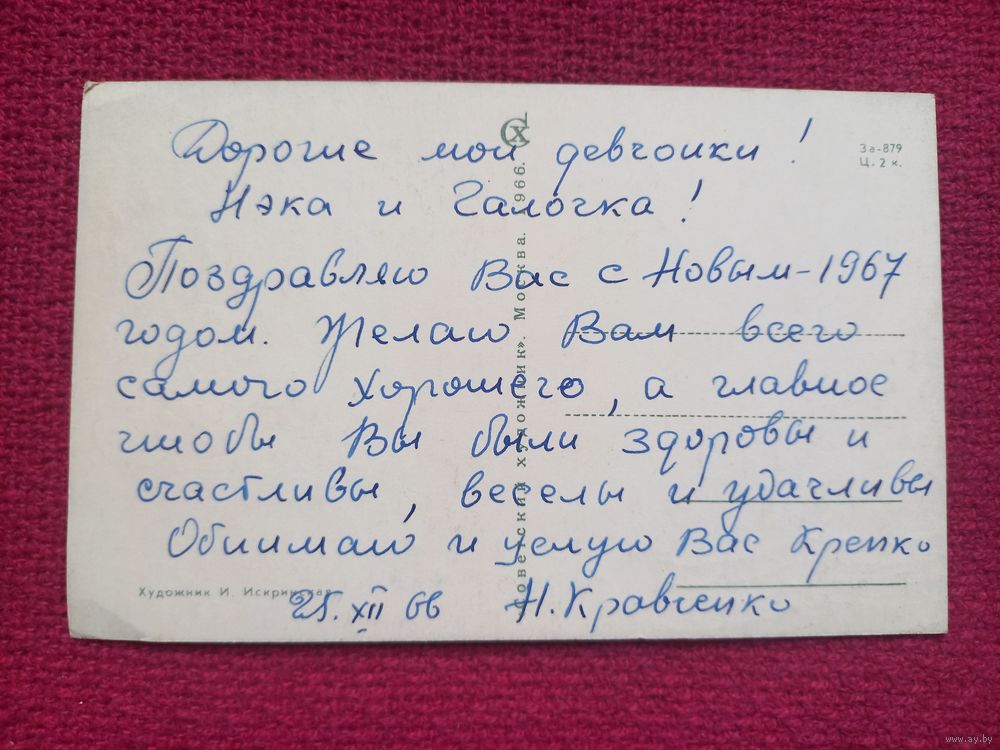 Дорогие мои девчонки!
Нэка и Галочка!
Поздравляю Вас с Новым-1967
годом. Желаю Вам всего
самого хорошего, а главное
чтобы Вы были здоровы и
счастливы, веселы и удачливы
Обнимаю и целую Вас крепко
25.XII 66 Н. Кравченко
СХ
«Советский художник». Москва. 1966.
За-879
Ц. 2 к.
Художник И. Искринская
www.ay.by